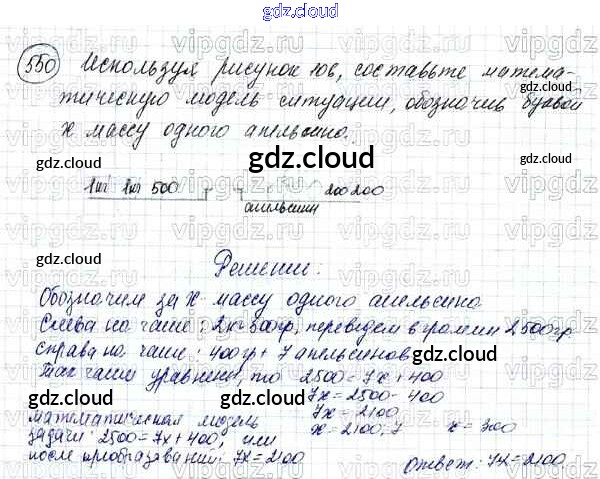 gdz.cloud
550 Используя рисунок 106, составьте матема-
тическую модель ситуации, обозначив буквой
x массу одного апельсина.
gdz.cloud
1кг 1кг 500
200 200
апельсины
gdz.cloud
gdz.cloud
Решение:
Обозначим за x массу одного апельсина
Слева на чаше: 2кг 500гр, переведем в граммы 2500гр.
справа на чаше: 400гр + 7 апельсинов
Так чаши уравнены, то 2500 = 7x + 400
7x = 2500 - 400
7x = 2100
x = 2100:7 x = 300
математическая модель
задачи: 2500 = 7x + 400, или
после преобразований: 7x = 2100
ответ: 7x = 2100
gdz.cloud
gdz.cloud
gdz.cloud
gdz.cloud